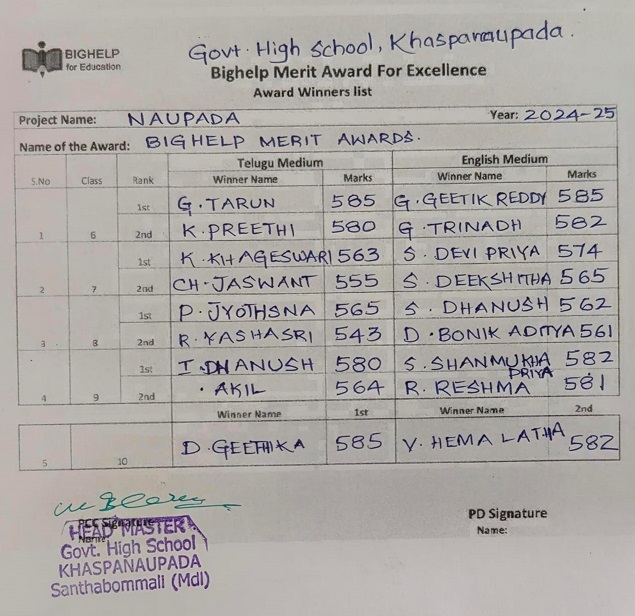 BIGHELP
for Education
Govt. High School, Khaspanaupada.
Bighelp Merit Award For Excellence
Award Winners list
Project Name: NAUPADA Year: 2024-25
Name of the Award: BIGHELP MERIT AWARDS.
Telugu Medium English Medium
S.No Class Rank Winner Name Marks Winner Name Marks
1st G. TARUN 585 G. GEETIK REDDY 585
1 6 2nd K. PREETHI 580 G. TRINADH 582
1st K. KHAGESWARI 563 S. DEVI PRIYA 574
2 7 2nd CH. JASWANT 555 S. DEEKSHITHA 565
1st P. JYOTHSNA 565 S. DHANUSH 562
3 8 2nd R. YASHASRI 543 D. BONIK ADITYA 561
1st T. DHANUSH 580 S. SHANMUKHA PRIYA 582
4 9 2nd . AKIL 564 R. RESHMA 581
Winner Name 1st Winner Name 2nd
5 10 D. GEETHIKA 585 V. HEMA LATHA 582
PD Signature
Name:
Signature
Name
HEAD MASTER
Govt. High School
KHASPANAUPADA
Santhabommali (Mdl)